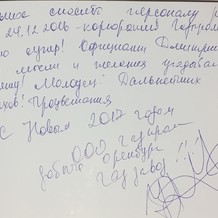 спасибо персоналу
24.12.2016 - корпоратив Газпром
Официанты Дмитрий
мысли и желания угадывал
Молодец! Дальнейших
Процветания
С Новым 2017 годом
ООО "Газпром
добыча Оренбург
Газзавод !!!